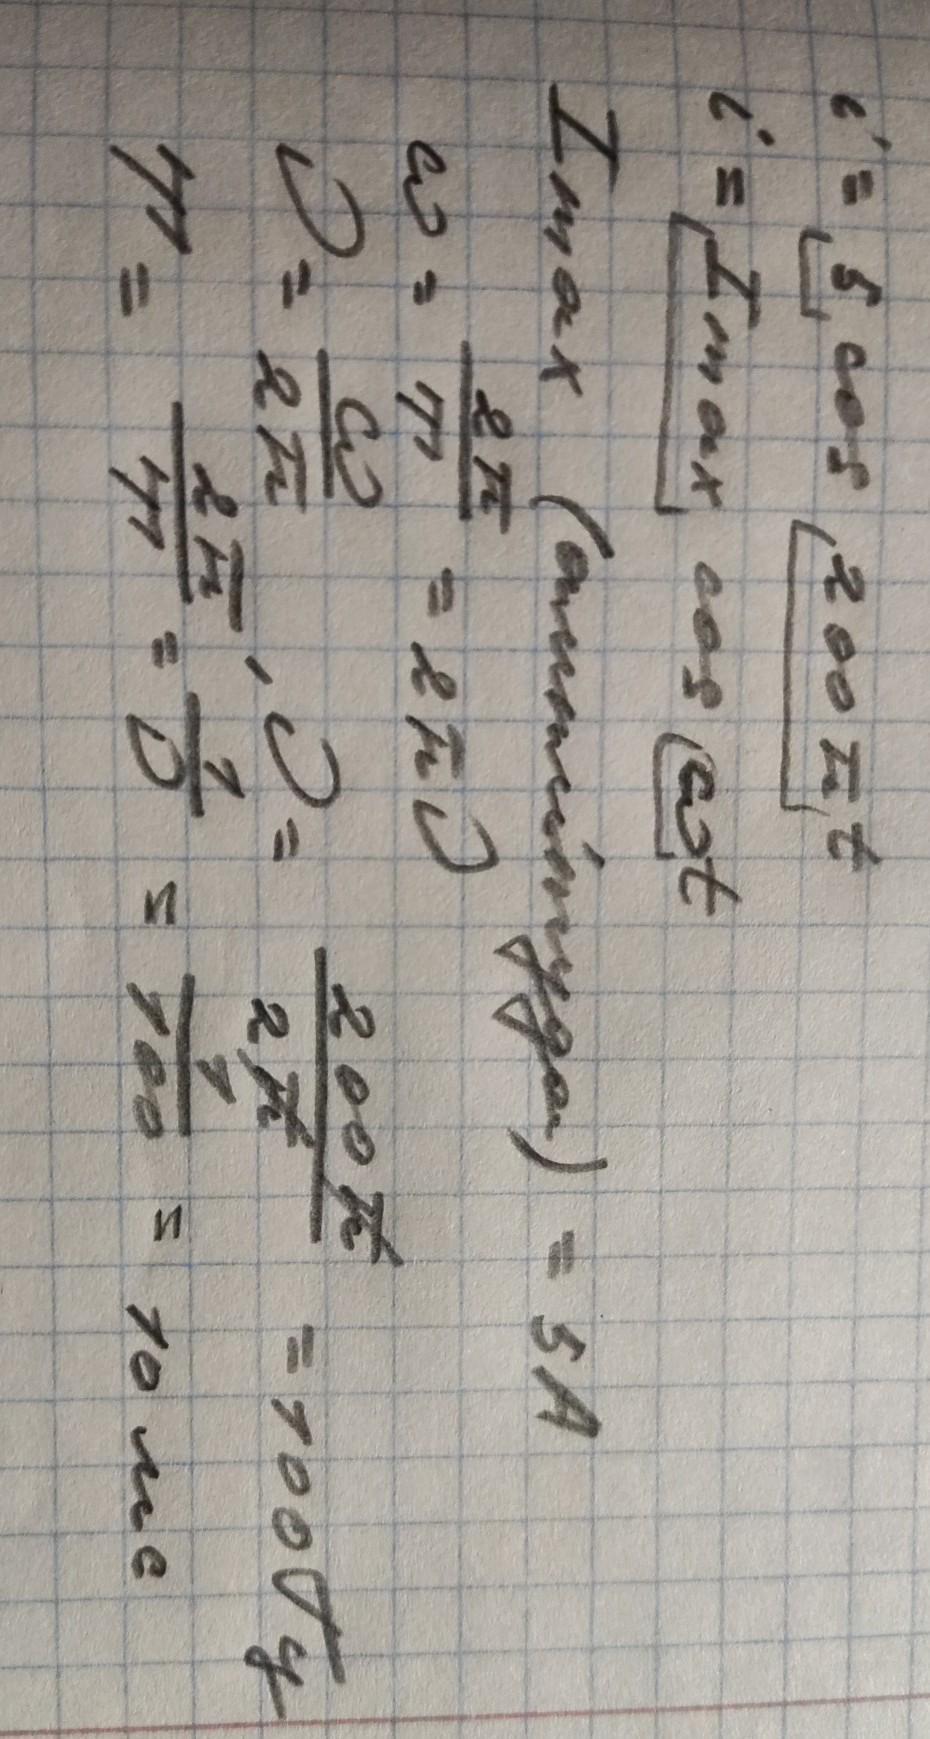 i = 5 cos 200πt
i = Imax cos ωt
Imax (амплітуда) = 5A
ω = 2π/T = 2πν
ν = ω/2π, ν = 200π/2π = 100 Гц
T = 2π/T = 1/ν = 1/100 = 10 мс